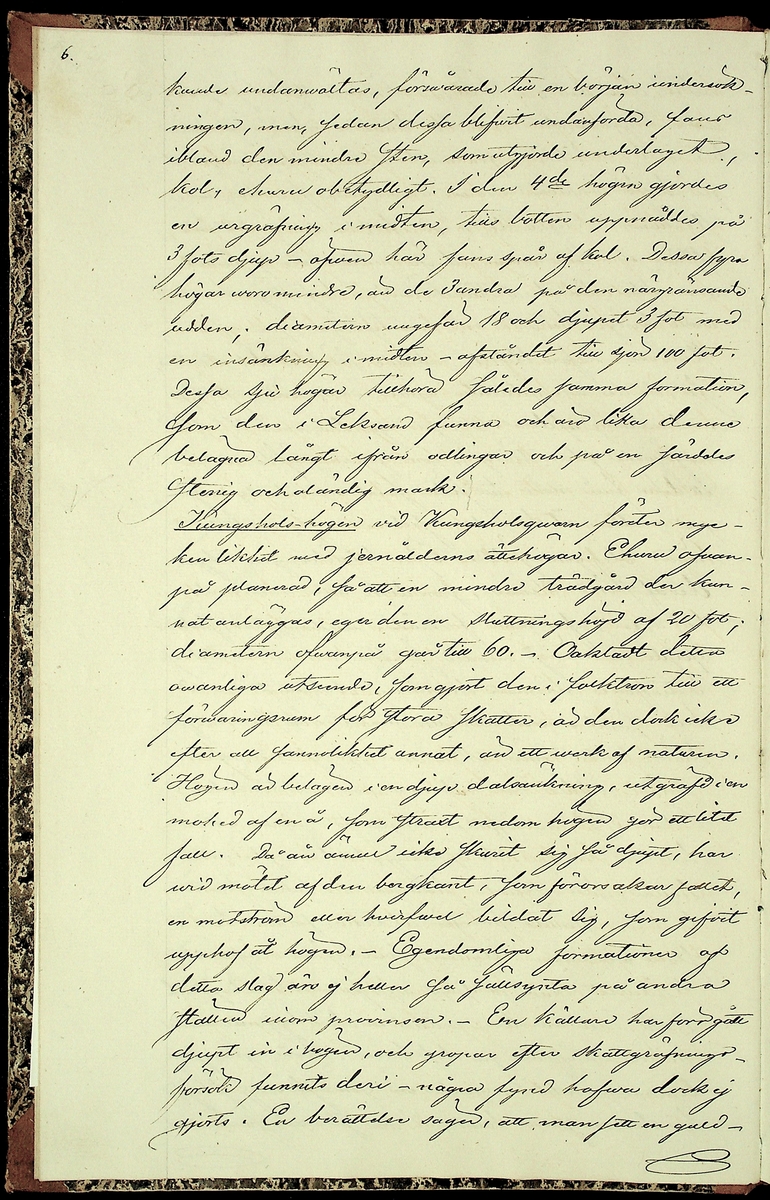 6.
kunde undanwältas, förswårade till en början undersök-
ningen, men, sedan dessa blifvit undanförda, fans
ibland den mindre sten, som utgjorde underlaget,
kol, ehuru obetydligt. I den 4de högen gjordes
en urgräfning i midten, tills botten uppnåddes på
3 fots djup – äfven här fans spår af kol. Dessa fyra
högar woro mindre, än de 3 andra på den närgränsande
udden, diametern ungefär 18 och djupet 3 fot med
en insänkning i midten – afståndet till sjön 100 fot.
Dessa sju högar tillhöra således samma formation,
som den i Leksand funna och äro lika denne
belägna långt ifrån odlingar och på en särdeles
stenig och oländig mark.
Kungshols-högen vid Kungsholsqwarn företer myc-
ken likhet med jernålderns ättehögar. Ehuru ofvan-
på planerad, så att en mindre trädgård der kun-
nat anläggas, eger den en sluttningshöjd af 20 fot,
diametern ofwanpå går till 60. – Oaktadt detta
owanliga utseende, som gjort den i folktron till ett
förwaringsrum för stora skatter, är den dock icke
efter all sannolikhet annat, än ett werk af naturen.
Högen är belägen i en djup dalsänkning, utgräfd i en
mohed af en å, som straxt nedom högen gör ett litet
fall. Då ån ännu icke skurit sig så djupt, har
wid mötet af den bergkant, som förorsakar fallet,
en motström eller hvirfvel bildat sig, som gifvit
upphof åt högen. – Egendomliga formationer af
detta slag äro ej heller så sällsynta på andra
ställen inom provinsen. – En källare har förr gått
djupt in i högen, och gropar efter skattgräfnings-
försök funnits deri – några fynd hafwa dock ej
gjorts. En berättelse säger, att man sett en guld-